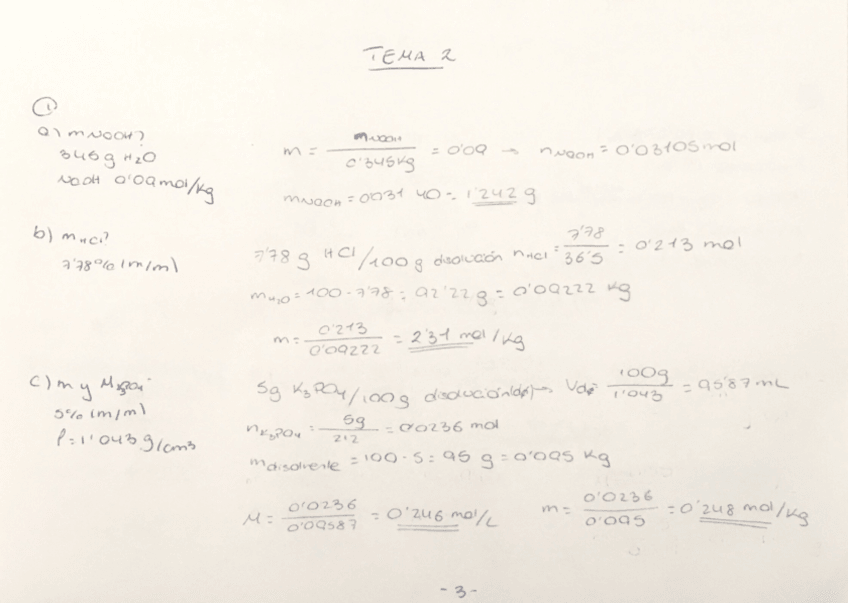 TEMA 2
①
a) mNaOH?
345g H2O
NaOH 0'09mol/kg
m = mNaOH / 0'345kg = 0'09 → nNaOH = 0'03105mol
mNaOH = 0'031 · 40 = 1'242 g
b) mHCl?
7'78% (m/m)
7'78 g HCl/100g disolución nHCl = 7'78 / 36'5 = 0'213 mol
mH2O = 100 - 7'78 = 92'22g = 0'09222 kg
m = 0'213 / 0'09222 = 2'31 mol/kg
c) m y MK3PO4
5% (m/m)
ρ = 1'043 g/cm3
5g K3PO4/100g disolución(dó) → Vdó = 100g / 1'043 = 95'87 mL
nK3PO4 = 5g / 212 = 0'0236 mol
mdisolvente = 100 - 5 = 95 g = 0'095 Kg
M = 0'0236 / 0'09587 = 0'246 mol/L m = 0'0236 / 0'095 = 0'248 mol/kg
- 3 -